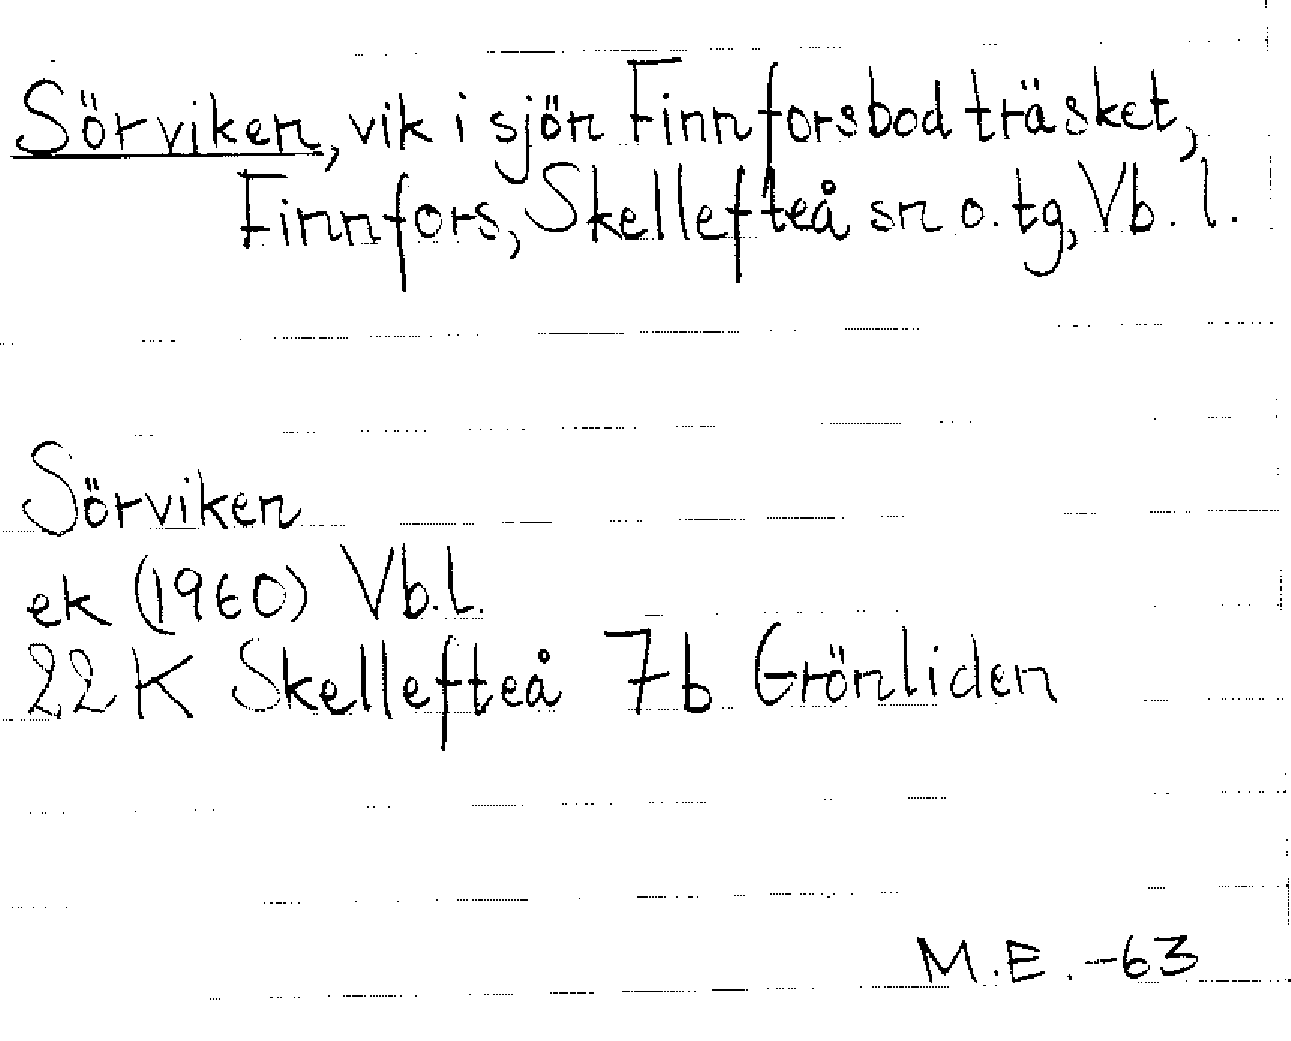 Sörviken, vik i sjön Finnforsbodträsket,
Finnfors, Skellefteå sn o. tg, Vb. l.
Sörviken
ek (1960) Vb.l.
22K Skellefteå 7b Grönliden
M.E. -63